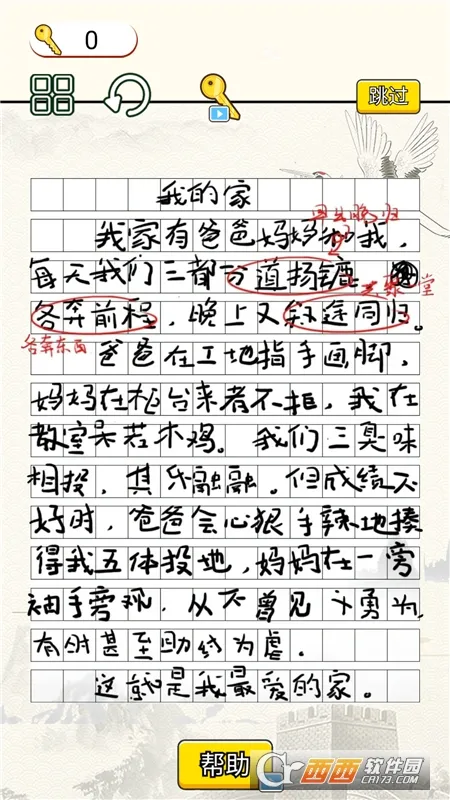 0
跳过
我的家
早出晚归
我家有爸爸妈妈和我,
每天我们三都分道扬镳,
共聚一堂
各奔前程,晚上又殊途同归。
各奔东西
爸爸在工地指手画脚,
妈妈在柜台来者不拒,我在
教室呆若木鸡。我们三臭味
相投,其乐融融。但成绩不
好时,爸爸会心狠手辣地揍
得我五体投地,妈妈在一旁
袖手旁观,从不曾见义勇为,
有时甚至助纣为虐.
这就是我最爱的家。
帮助
西西软件园
CR173.COM